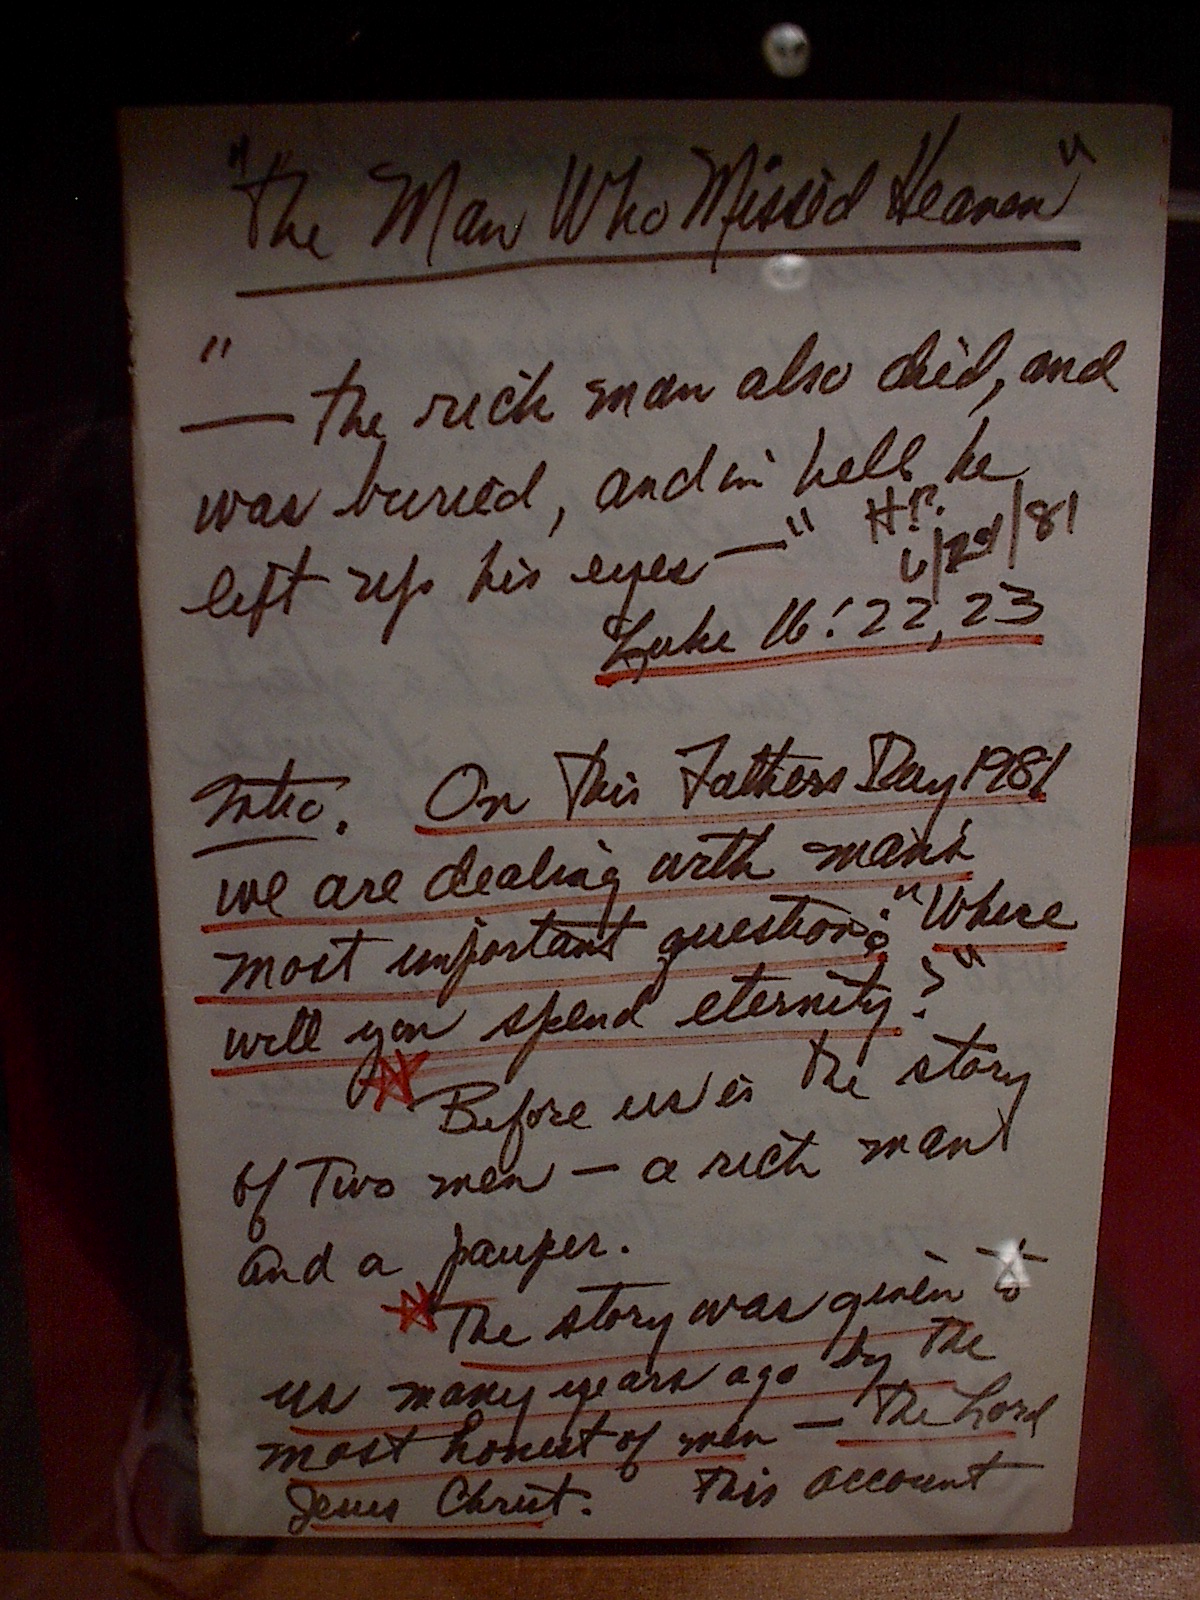 "The Man Who Missed Heaven"
"
— The rich man also died, and
was buried, and in hell he
left up his eyes —"
H.P.
6/21/81
Luke 16:22,23
Intro. On This Fathers Day 1981
we are dealing with man's
most important question: "Where
will you spend eternity?"
Before us is the story
of Two men — a rich man
and a pauper.
The story was given to
us many years ago by the
most honest of men — The Lord
Jesus Christ. This account